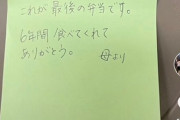 これが最後の弁当です。
6年間食べてくれて
ありがとう。
母より